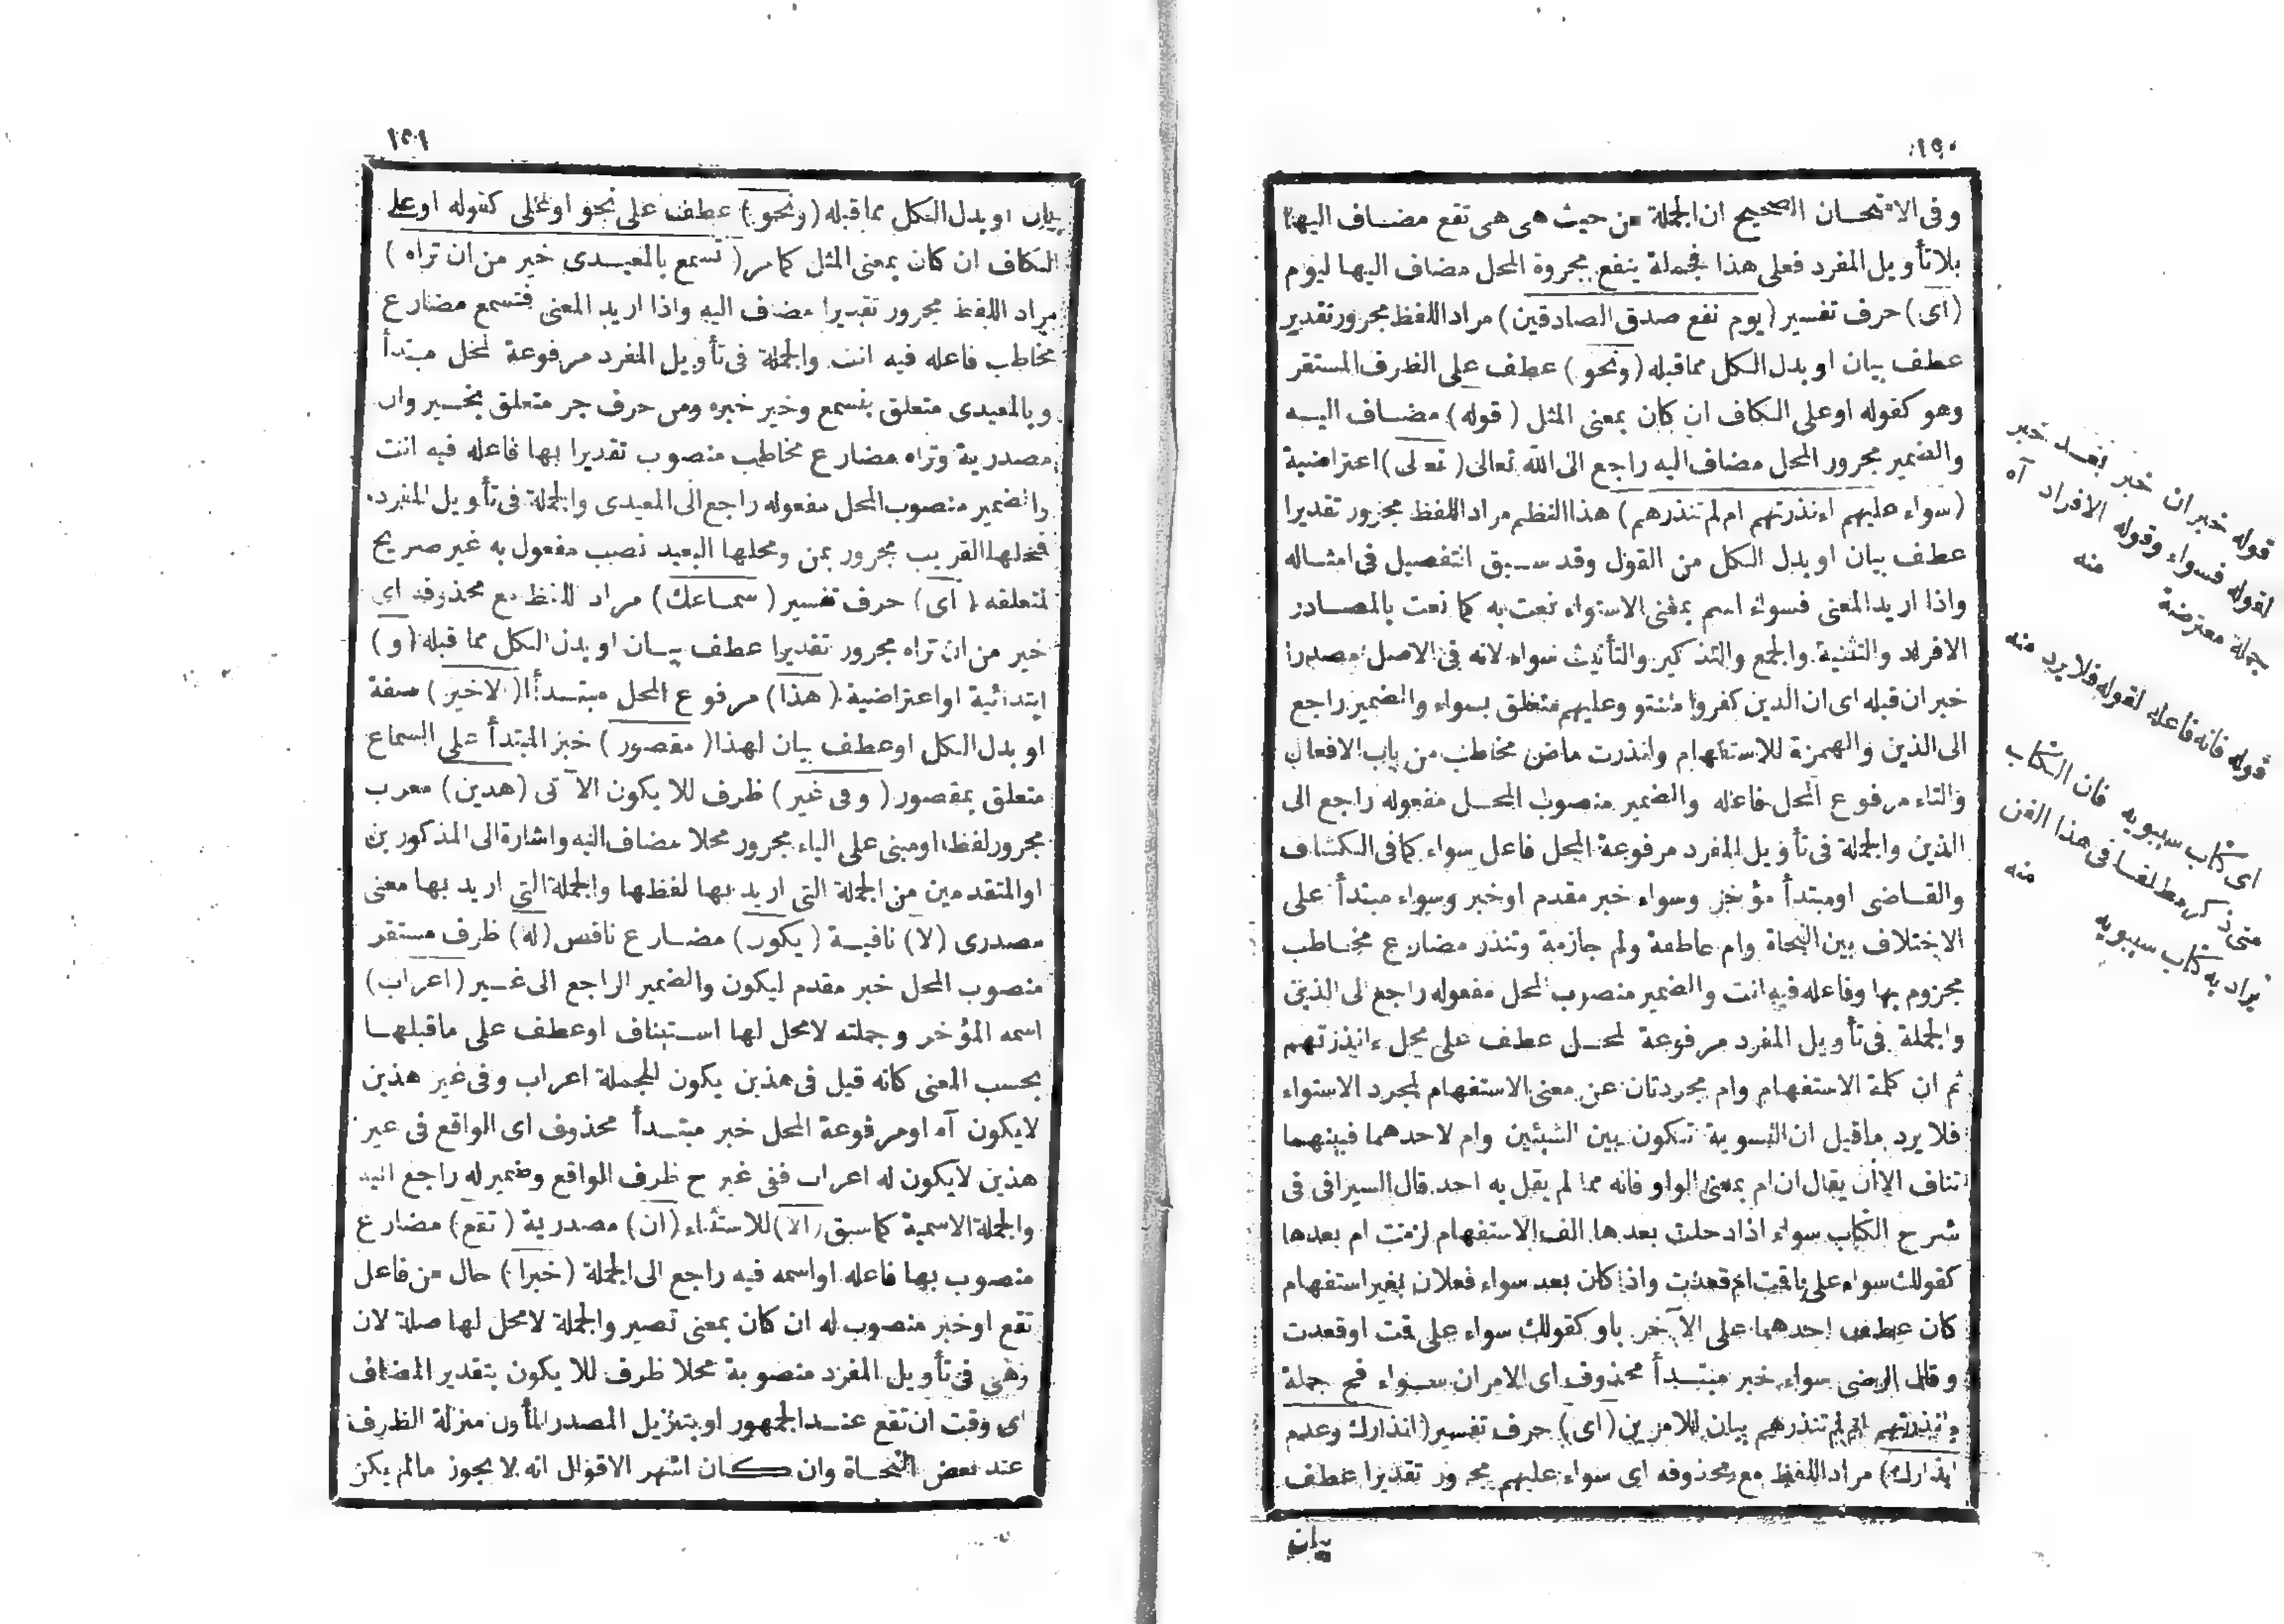 ١٥٠
وفى الامتحان الصحيح ان الجملة من حيث هى هى تقع مضاف اليها
بلا تأويل المفرد فعلى هذا فجملة ينفع مجرورة المحل مضاف اليها ليوم
(اى) حرف تفسير (يوم نفع صدق الصادقين) مراد اللفظ مجرور تقدير
عطف بيان او بدل الكل مما قبله (ونحو) عطف على الظرف المستقر
وهو كقوله او على الكاف ان كان بمعنى المثل (قوله) مضاف اليه
والضمير مجرور المحل مضاف اليه راجع الى الله تعالى (تعالى) اعتراضية
(سواء عليهم ءانذرتهم ام لم تنذرهم) هذا النظم مراد اللفظ مجرور تقديرا
عطف بيان او بدل الكل من القول وقد سبق التفصيل فى امثاله
واذا اريد المعنى فسواء اسم بمعنى الاستواء نعت به كما نعت بالمصادر
الافراد والتثنية والجمع والتذكير والتأنيث سواء لانه فى الاصل مصدرا
خبر ان قبله اى ان الذين كفروا وعليهم متعلق بسواء والضمير راجع
الى الذين والهمزة للاستفهام وانذرت ماض مخاطب من باب الافعال
والتاء مرفوع المحل فاعله والضمير منصوب المحل مفعوله راجع الى
الذين والجملة فى تأويل المفرد مرفوعة المحل فاعل سواء كما فى الكشاف
والقاضى او مبتدأ مؤخر وسواء خبر مقدم او خبر وسواء مبتدأ على
الاختلاف بين النحاة وام عاطفة ولم جازمة وتنذر مضارع مخاطب
مجزوم بها وفاعله فيه انت والضمير منصوب المحل مفعوله راجع الى الذين
والجملة فى تأويل المفرد مرفوعة المحل عطف على محل ءانذرتهم
ثم ان كلمة الاستفهام وام مجردتان عن معنى الاستفهام لمجرد الاستواء
فلا يرد ما قيل ان التسوية تكون بين الشيئين وام لاحدهما فبينهما
تناف الا ان يقال ان ام بمعنى الواو فانه مما لم يقل به احد قال السيرافى فى
شرح الكتاب سواء اذا دخلت بعدها الف الاستفهام لزمت ام بعدها
كقولك سواء على اقمت ام قعدت واذا كان بعد سواء فعلان بغير استفهام
كان عطف احدهما على الآخر باو كقولك سواء على قمت او قعدت
وقال الرضى سواء خبر مبتدأ محذوف اى الامران سواء فح جملة
ءانذرتهم ام لم تنذرهم بيان للامرين (اى) حرف تفسير (انذارك وعدم
انذارك) مراد اللفظ مع محذوفه اى سواء عليهم مجرور تقديرا عطف
بيان
قوله خبر ان خبر بعد خبر
لقوله فسواء وقوله الافراد آه
جملة معترضة منه
قوله فانه فاعله لقوله فلا يرد منه
اى كتاب سيبويه فان الكتاب
متى ذكر مطلقا فى هذا الفن
يراد به كتاب سيبويه منه
١٥١
بيان او بدل الكل مما قبله (ونحو) عطف على نحو او على كقوله او على
الكاف ان كان بمعنى المثل كما مر (تسمع بالمعيدى خير من ان تراه)
مراد اللفظ مجرور تقديرا مضاف اليه واذا اريد المعنى فتسمع مضارع
مخاطب فاعله فيه انت والجملة فى تأويل المفرد مرفوعة المحل مبتدأ
وبالمعيدى متعلق بتسمع وخير خبره ومن حرف جر متعلق بخير وان
مصدرية وتراه مضارع مخاطب منصوب تقديرا بها فاعله فيه انت
والضمير منصوب المحل مفعوله راجع الى المعيدى والجملة فى تأويل المفرد
فمحلها القريب مجرور بمن ومحلها البعيد نصب مفعول به غير صريح
لمتعلقه (اى) حرف تفسير (سماعك) مراد اللفظ مع محذوفه اى
خير من ان تراه مجرور تقديرا عطف بيان او بدل الكل مما قبله (و)
ابتدائية او اعتراضية (هذا) مرفوع المحل مبتدأ (الاخير) صفة
او بدل الكل او عطف بيان لهذا (مقصور) خبر المبتدأ على السماع
متعلق بمقصور (وفى غير) ظرف للا يكون الآتى (هذين) معرب
مجرور لفظا او مبنى على الياء مجرور محلا مضاف اليه واشارة الى المذكورين
او المتقدمين من الجملة التى اريد بها لفظها والجملة التى اريد بها معنى
مصدرى (لا) نافية (يكون) مضارع ناقص (له) ظرف مستقر
منصوب المحل خبر مقدم ليكون والضمير الراجع الى غير (اعراب)
اسمه المؤخر وجملته لا محل لها استيناف او عطف على ما قبلها
بحسب المعنى كانه قيل فى هذين يكون للجملة اعراب وفى غير هذين
لا يكون آه او مرفوعة المحل خبر مبتدأ محذوف اى الواقع فى غير
هذين لا يكون له اعراب ففى غير ح ظرف الواقع وضمير له راجع اليه
والجملة الاسمية كما سبق (الا) للاستثناء (ان) مصدرية (تقع) مضارع
منصوب بها فاعله او اسمه فيه راجع الى الجملة (خبرا) حال من فاعل
تقع او خبر منصوب له ان كان بمعنى تصير والجملة لا محل لها صلة لان
وهى فى تأويل المفرد منصوبة محلا ظرف للا يكون بتقدير المضاف
اى وقت ان تقع عند الجمهور او بتنزيل المصدر المأول منزلة الظرف
عند بعض النحاة وان كان اشهر الاقوال انه لا يجوز ما لم يكن